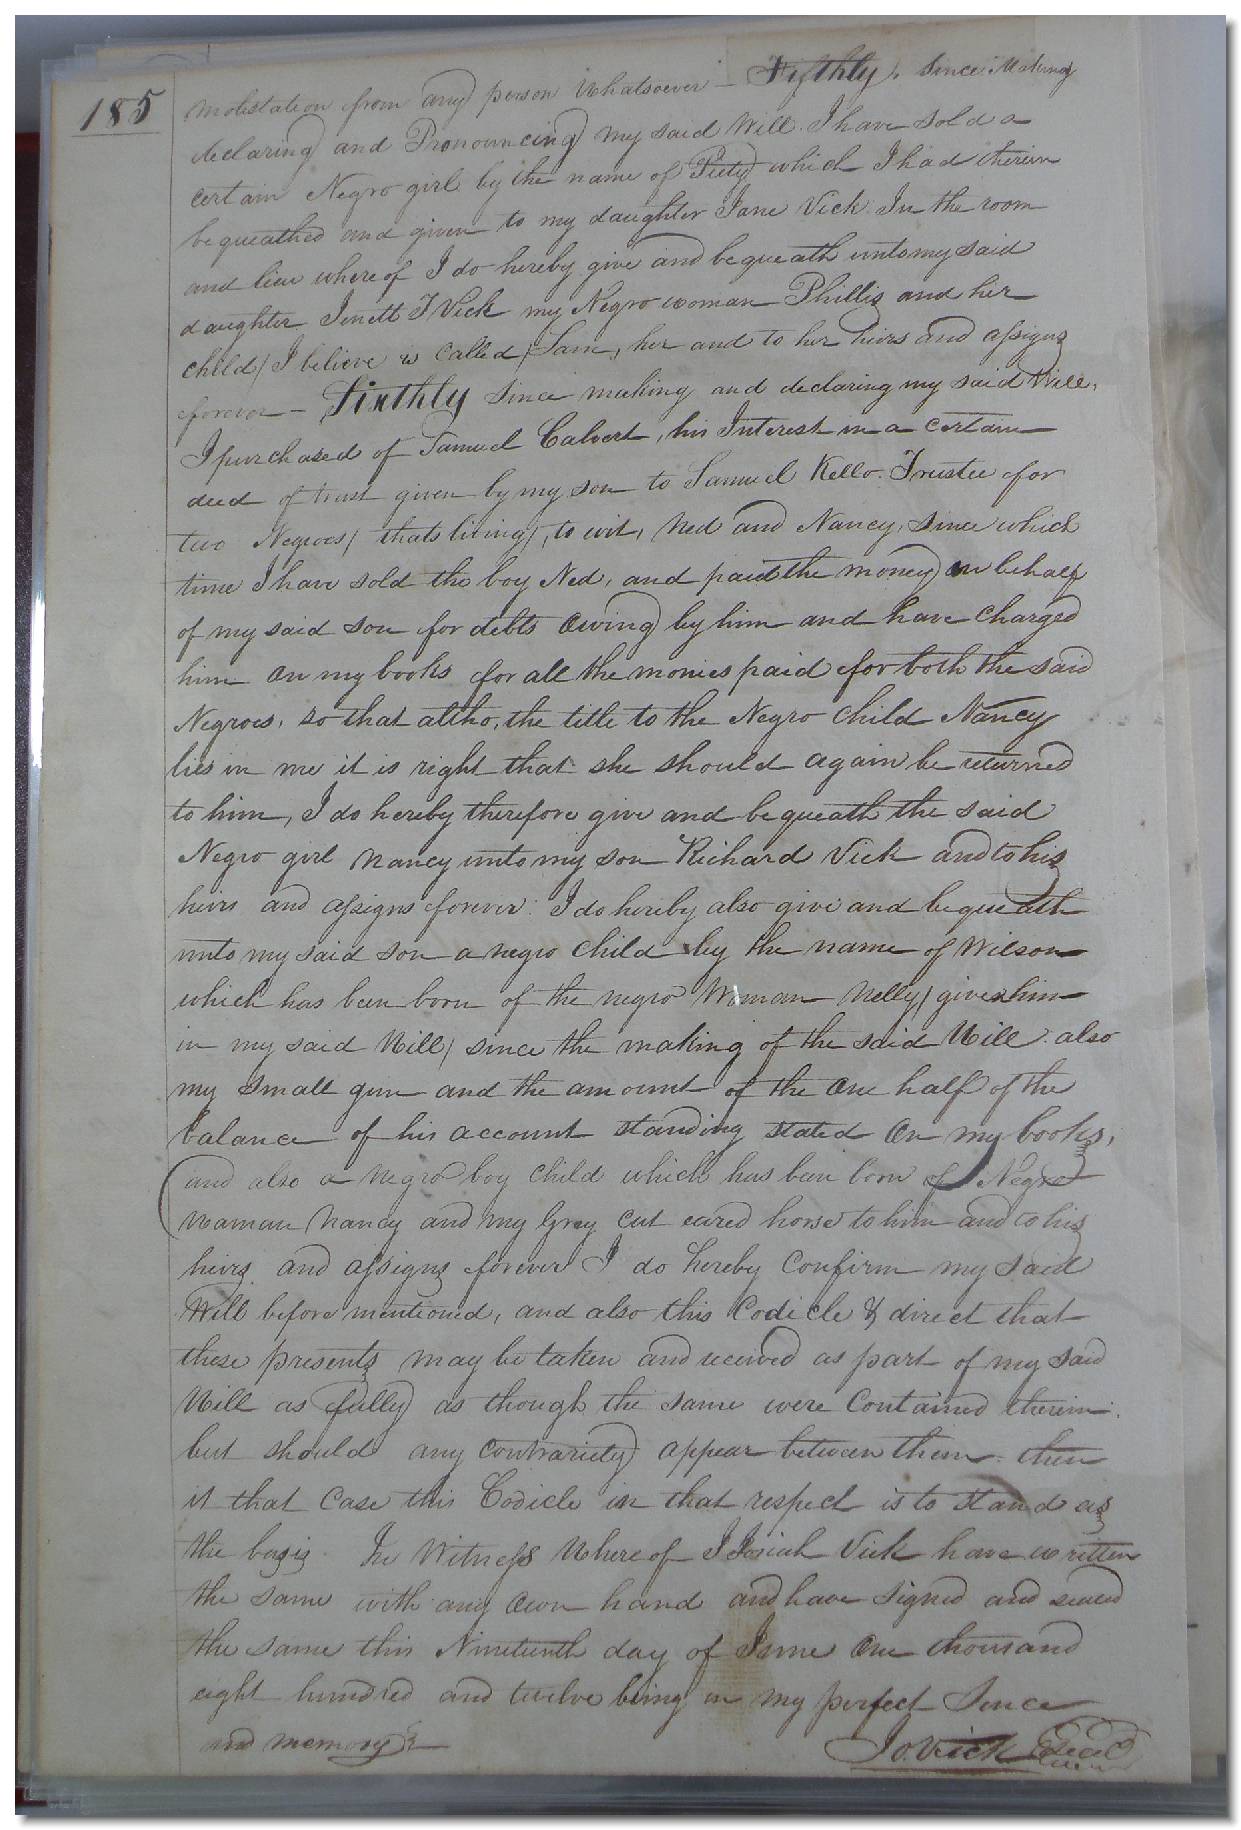 185
molistation from any person Whatsoever — Fifthly, Since Making
declaring and Pronouncing my said Will. I have sold a
certain Negro girl by the name of Piety which I had therein
bequeathed and given to my daughter Jane Vick. In the room
and lieu whereof I do hereby give and bequeath unto my said
daughter Jenett T Vick my Negro woman Phillis and her
child / I believe is called / Sam, her and to her heirs and assigns
forever — Sixthly Since making and declaring my said Will,
I purchased of Samuel Calvert, his Interest in a certain
deed of trust given by my son to Samuel Kello. Trustee for
two Negroes / thats living /, to wit, Ned and Nancy, since which
time I have sold the boy Ned, and paid the money on behalf
of my said son for debts owing by him and have charged
him on my books for all the monies paid for both the said
Negroes, so that altho, the title to the Negro child Nancy
lies in me it is right that she should again be returned
to him, I do hereby therefore give and bequeath the said
Negro girl Nancy unto my son Richard Vick and to his
heirs and assigns forever. I do hereby also give and bequeath
unto my said son a negro child by the name of Wilson
which has been born of the negro Woman Nelly / given him
in my said Will / since the making of the said Will. also
my small gun and the amount of the one half of the
balance of his account standing stated on my books,
(and also a negro boy child which has been born of Negro
Woman Nancy and my Grey cut eared horse to him and to his
heirs and assigns forever I do hereby Confirm my said
Will before mentioned, and also this Codicle & direct that
these presents may be taken and received as part of my said
Will as fully as though the same were Contained therein.
but should any contrariety appear between them. then
it that Case this Codicle in that respect is to stand as
the basis. In Witness Whereof I Josiah Vick have written
the same with my own hand and have signed and sealed
the same this Nineteenth day of June One thousand
eight hundred and twelve being in my perfect Sence
and memory
Jo. Vick Seal